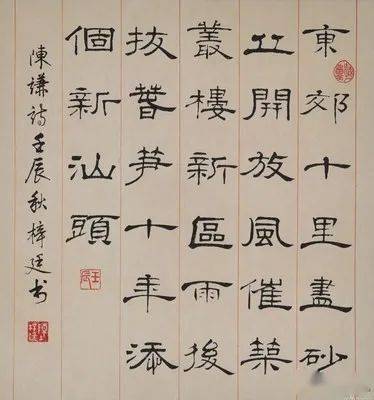 東郊十里盡砂
丘開放風催築
叢樓新區雨後
拔春笋十年添
個新汕頭
陳謙詩壬辰秋梓廷书
壬辰